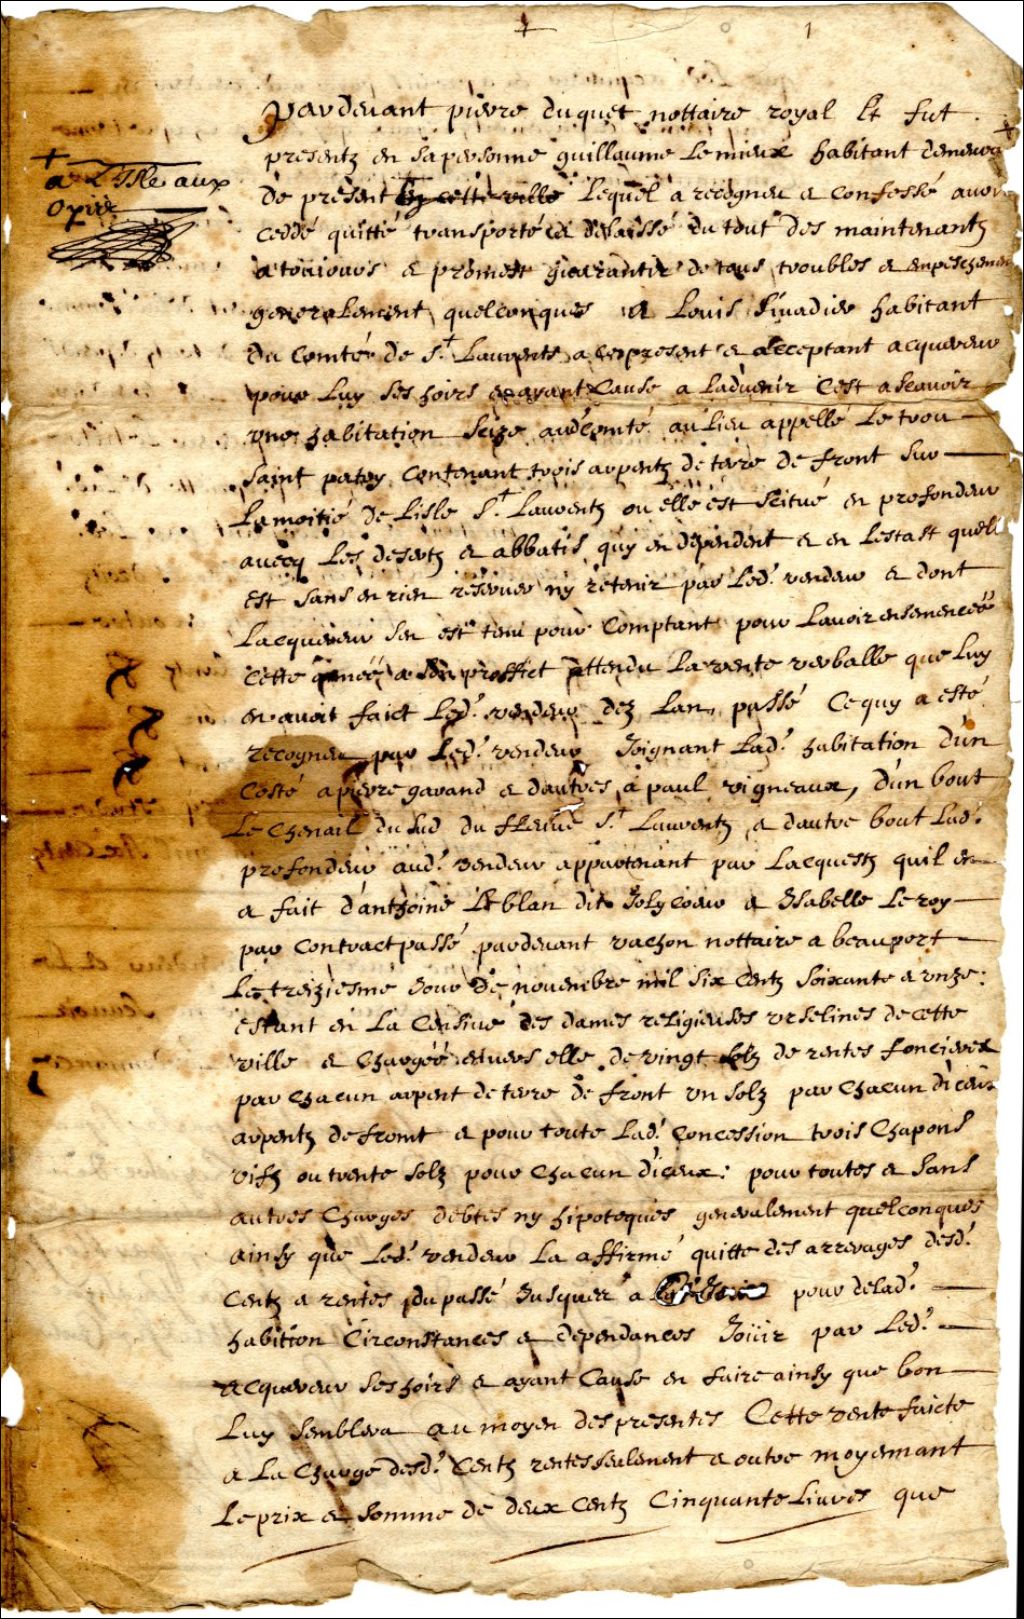 1
Pardevant pierre duquet nottaire royal Et fut
presentz en sa personne guillaume Lemieux habitant demeura
+
a L'Isle aux
Oyes
de present en cette ville Lequel a recogneu & confessé avoir
ceddé quitté transporté & delaissé du tout des maintenantz
a tousiours & promest guarantir de tous troubles & enpeschemen
generalement quelconques a Louis Sivadier habitant
du Comté de St Laurents a ce present & acceptant acquereur
pour Luy ses hoirs & ayant Cause a Ladvenir C'est a scavoir
une habitation seize aud Comté au Lieu appellé Le trou
saint patry Contenant trois arpentz de terre de front sur
La moitié de Lisle St Laurentz ou elle est scitué en profondeur
avecq Les desertz & abbatis quy en dependent & en Lestast quell
est sans en rien reserver ny retenir par Led. vendeur & dont
Lacquereur sen est tenu pour Comptant pour Lavoir ensemencéé
Cette année a son proffict attendu La vente verballe que Luy
en avoit faict Led. vendeur dez Lan passé Ce quy a esté
recogneu par Led. vendeur Joignant Lad. habitation d'un
Costé a pierre gavand & dautres a paul vigneaux, d'un bout
Le Chenail du sud du fleuve St Laurentz & dautre bout Lad.
profondeur aud. vendeur appartenant par Lacquestz quil en
a fait d'anthoine Leblan dit Jolycoeur & Isabelle Le roy
par Contract passé pardevant vachon nottaire a beauport
Le treiziesme Jour de novembre mil six Centz soixante & unze:
estant en La Censive des dames religieuses urselines de cette
ville & Chargéé envers elle de vingt solz de rentes foncieres
par chacun arpent de terre de front un solz par Chacun diceux
arpentz de front & pour toute Lad. Concession trois Chapons
vifz ou trente solz pour Chacun d'iceux: pour toutes & sans
autres Charges debtes ny hipoteques generalement quelconques
ainsy que Led. vendeur La affirmé quitte des arrerages desd.
Centz & rentes du passé Jusques a pour delad.
habition Circonstances & dependances Joüir par Led.
acquereur ses hoirs & ayant Cause en faire ainsy que bon
Luy semblera au moyen des presentes Cette vente faicte
a La Charge desd. Centz rentes seulement & outre moyennant
Le prix & somme de deux Centz Cinquante Livres que